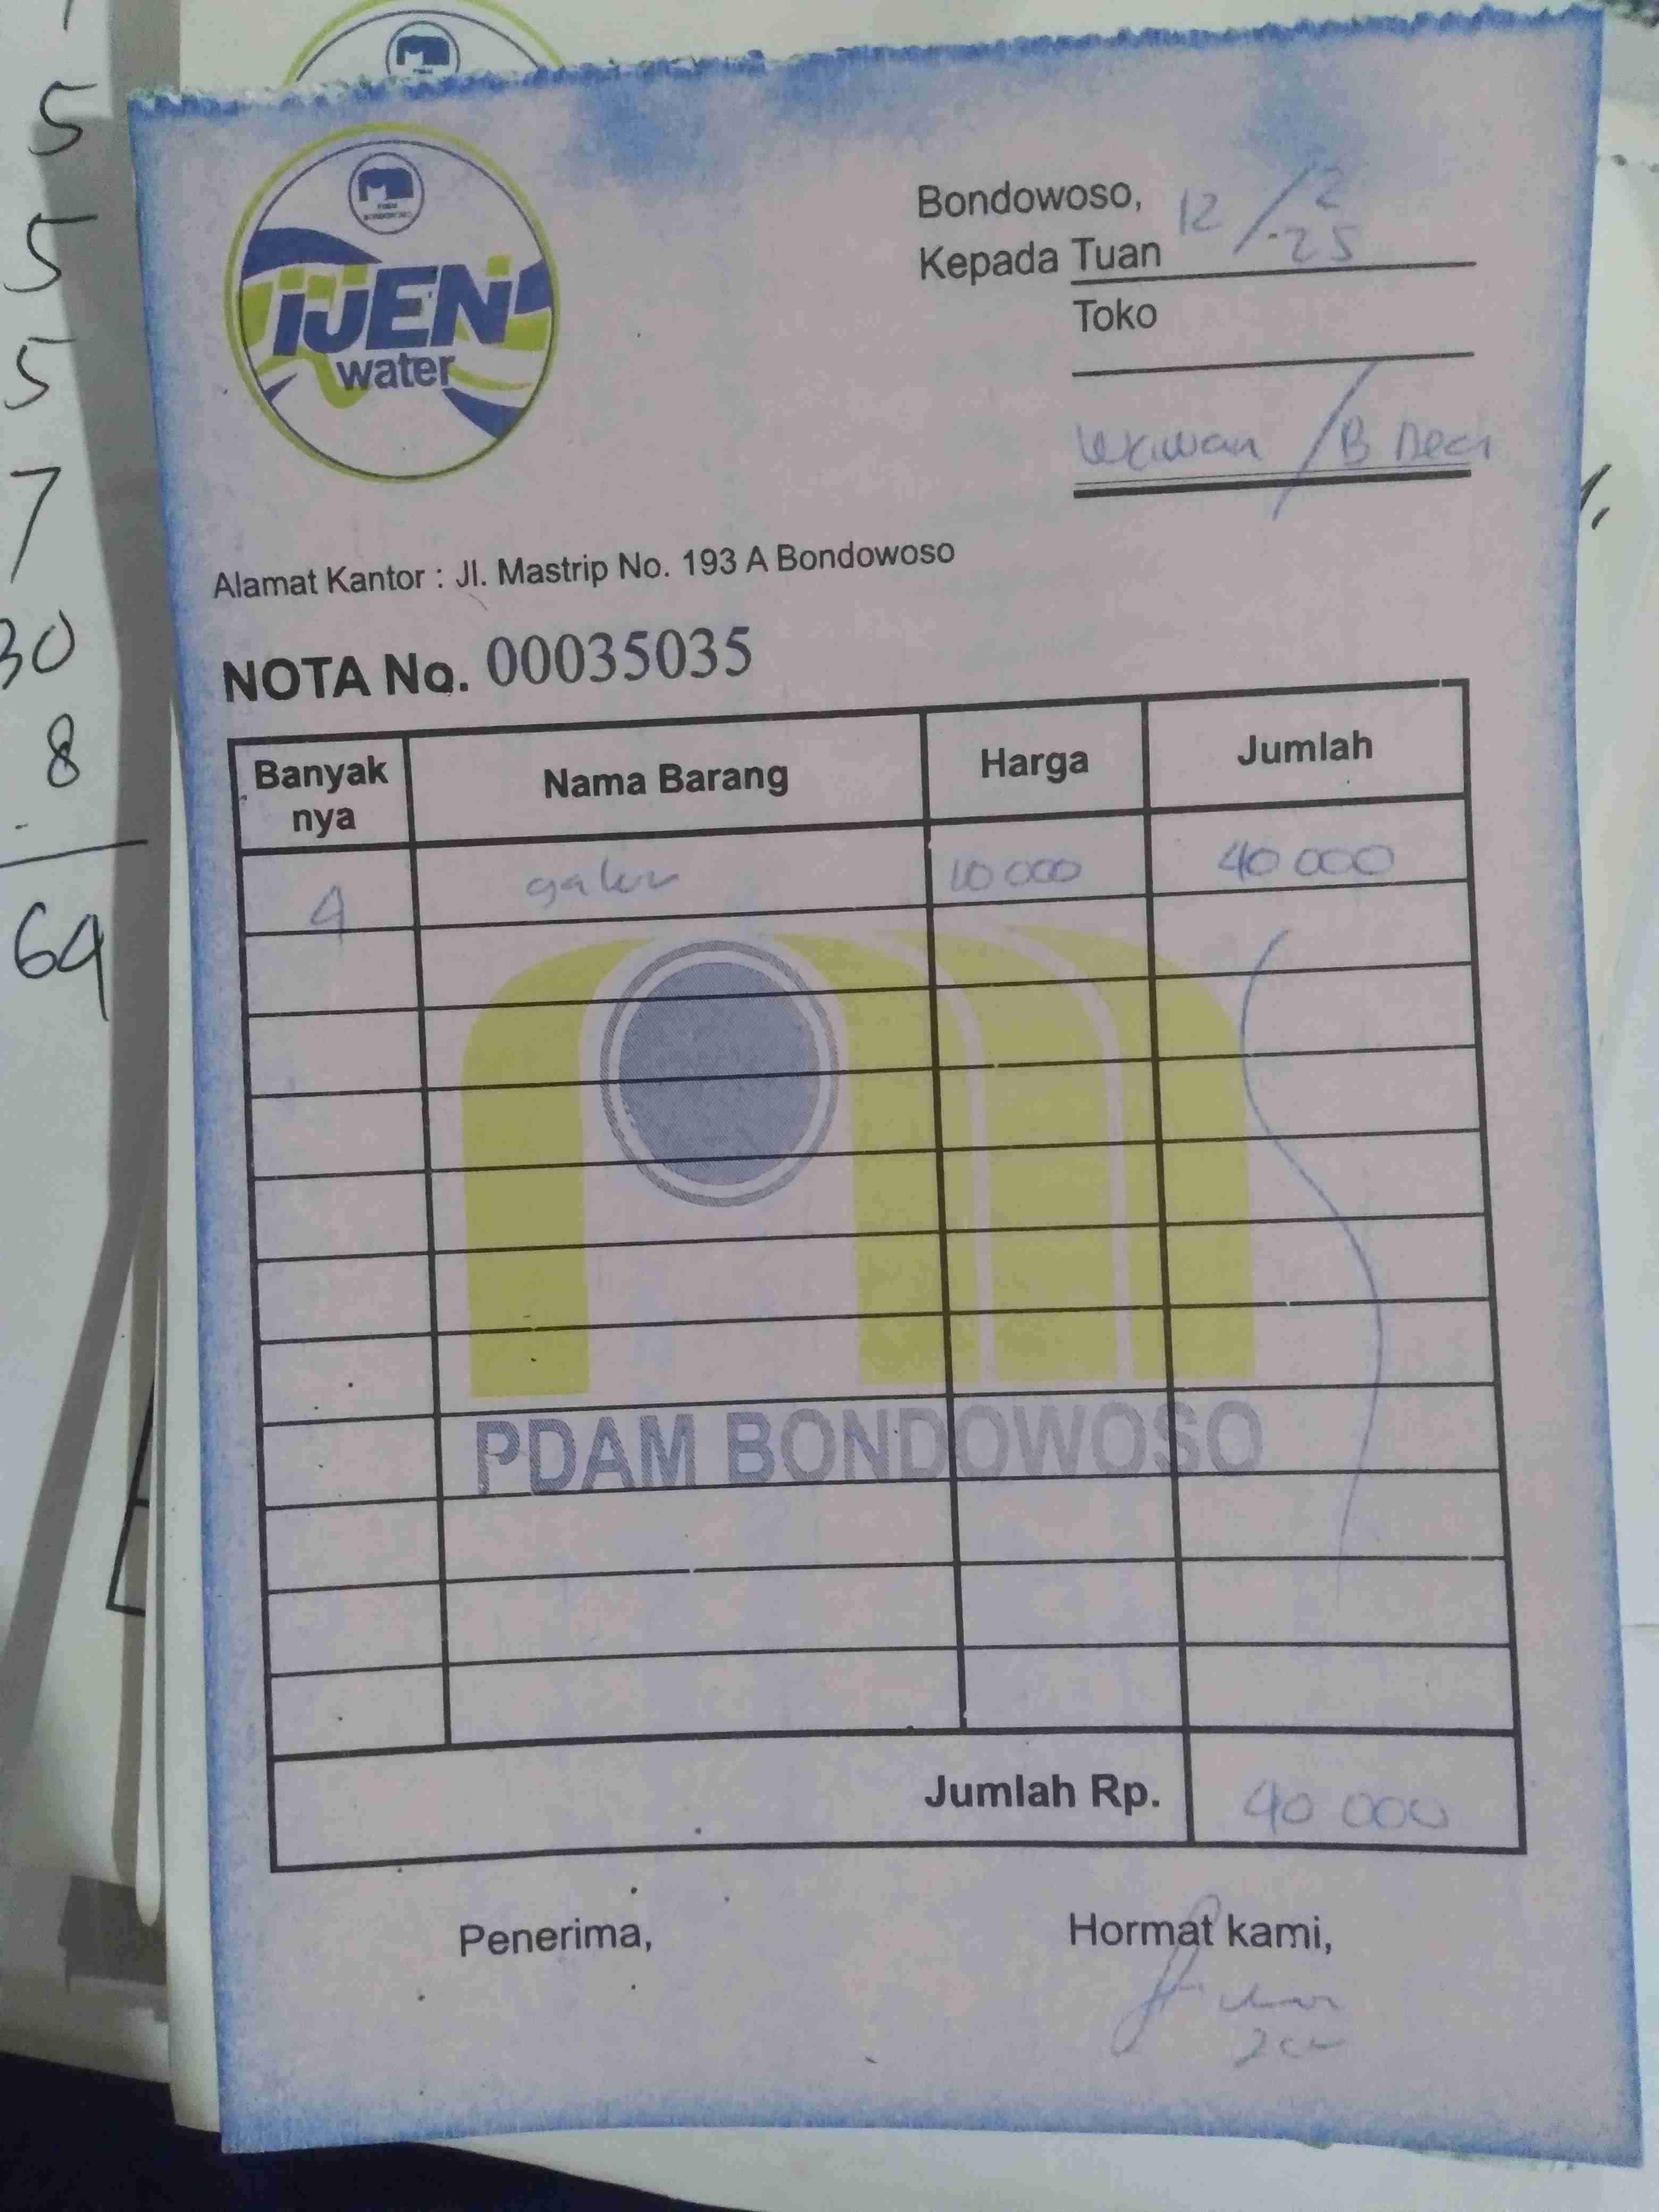 5
5
5
7
30
8
64
IJEN
water
Bondowoso, 12/2-25
Kepada Tuan
Toko
Wawan / B Deci
Alamat Kantor : Jl. Mastrip No. 193 A Bondowoso
NOTA No. 00035035
Banyak nya Nama Barang Harga Jumlah
4 galon 10 000 40 000
PDAM BONDOWOSO
Jumlah Rp. 40 000
Penerima, Hormat kami,